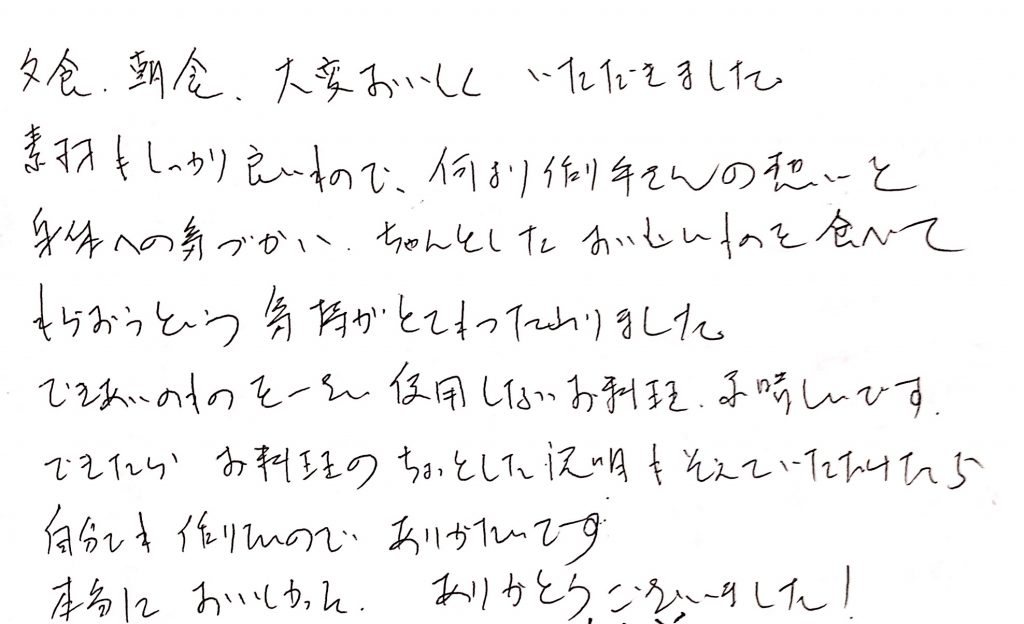 夕食、朝食、大変おいしく いただきました。
素材もしっかり良いもので、何より作り手さんの想いと
身体への気づかい、ちゃんとした おいしいものを食べて
もらおうという 気持がとてもつたわりました。
できあいのものを一さい 使用しないお料理、素晴しいです。
できたら お料理のちょっとした説明もそえていただけたら
自分でも 作りたいので、ありがたいです
本当に おいしかった。 ありがとうございました!